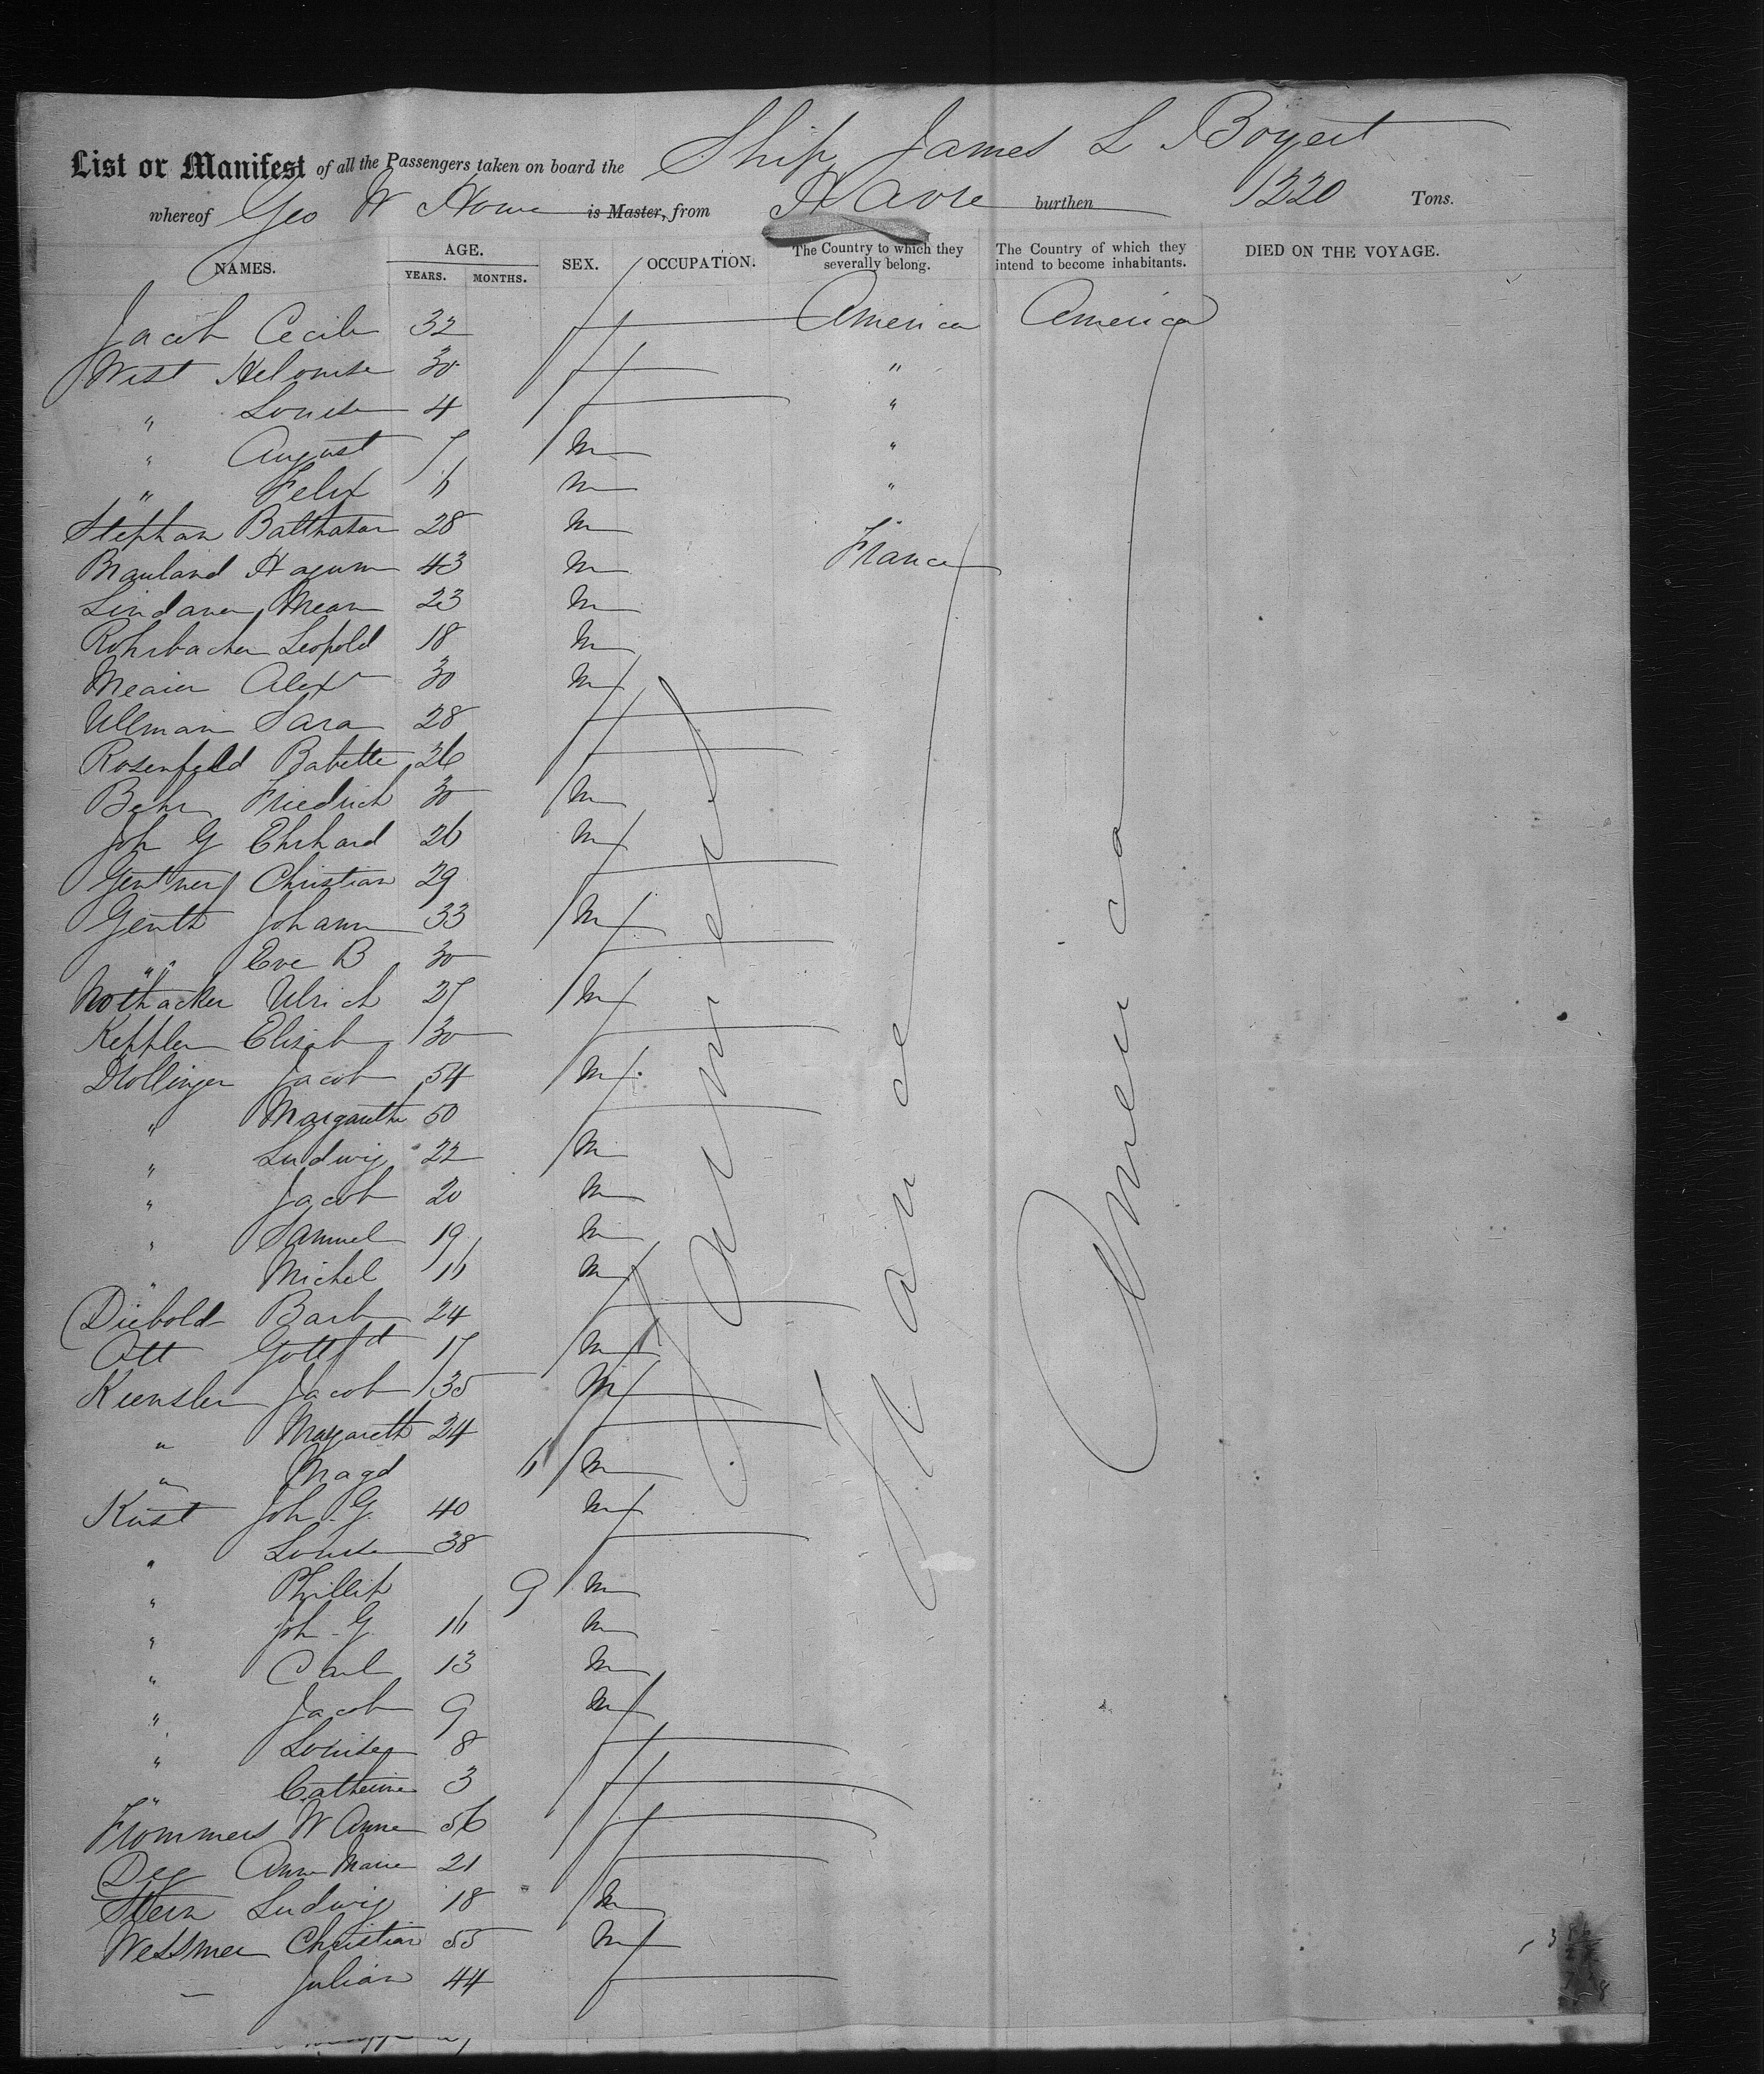 List or Manifest of all the Passengers taken on board the Ship James L Bogert
whereof Geo W Howe is Master, from Havre burthen 1220 Tons.
NAMES. AGE. YEARS. MONTHS. SEX. OCCUPATION. The Country to which they severally belong. The Country of which they intend to become inhabitants. DIED ON THE VOYAGE.
Jacob Cecile 32 f America America
West Helouise 30 f "
" Louise 4 f "
" August 7 m "
" Felix 6 m "
Stephan Balthasar 28 m "
Brauland 43 m France
Lindauer 23 m
Rohrbacher Leopold 18 m
Meaier Alexr 30 m
Ullman Sara 28 f
Rosenfeld Babette 26 f
Behr Friedrich 30 m
Joh G Ehrhard 26 m
Gentner Christian 29 f
Genth Johann 33 m
" " Eve B 30 f
Nothacker Ulrich 27 m
Keppler Elisab 30 f
Dollinger Jacob 54 m
" Margaretha 50 f
" Ludwig 22 m
" Jacob 20 m
" Samuel 19 m
" Michel 16 m
Diebold Barb 24 f
Ott Gottfd 17 m
Kuensler Jacob 35 m
" Margareth 24 f
" Magd 6 m
Kust Joh. G. 40 m
" Louise 38 f
" Phillip 9 m
" Joh. G. 16 m
" Carl 13 m
" Jacob 9 m
" Louise 8 f
" Catherine 3 f
Frommers W Anne 56 f
Deg Anne Marie 21 f
Stern Ludwig 18 m
Wessmer Christian 55 m
– Julian 44 f
Farmers
France
America